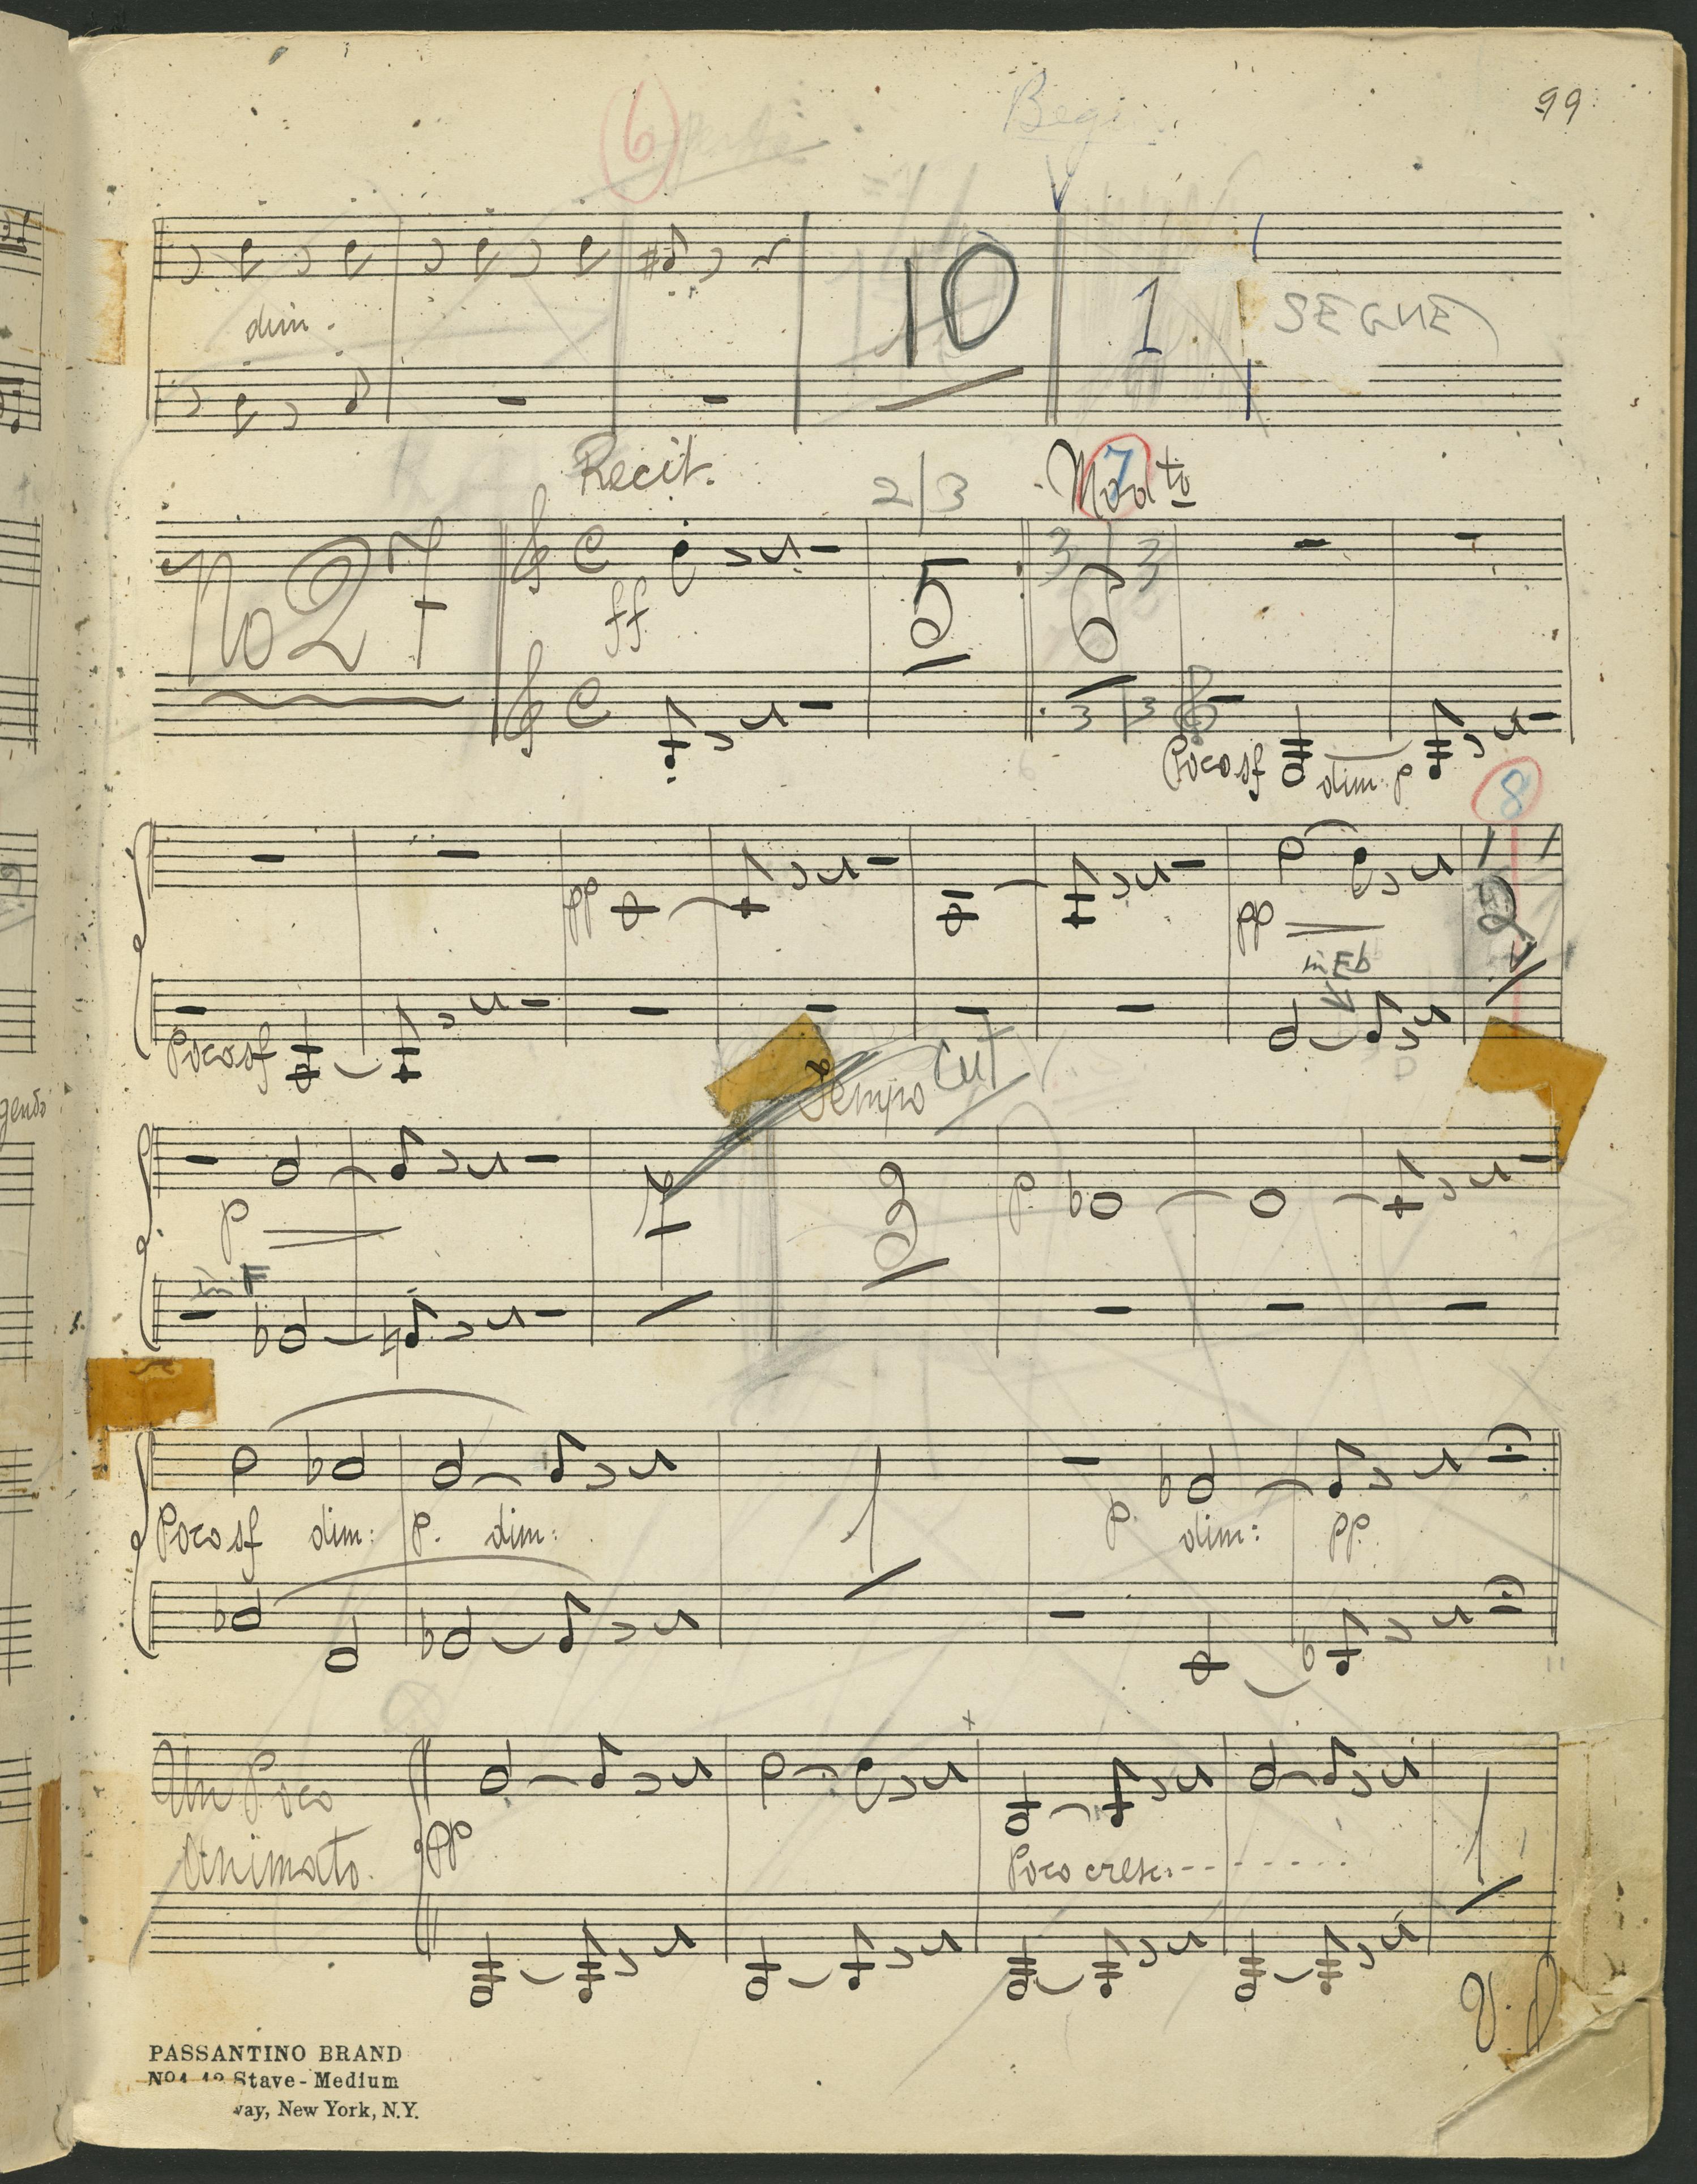 99
6
Begi
dim.
10
1
SEGUE
Recit.
2 3
7
Modto
No 27
ff
5
3 3
6
3 3
Poco sf dim. p
8
pp
pp
2
in Eb
Poco sf
Cut
Tempo
1
2
p
p.
in F
Poco sf dim: p. dim:
1
p. dim: pp.
Un Poco
Animato.
pp
Poco cresc:
1
V.S.
PASSANTINO BRAND
No1 12 Stave-Medium
way, New York, N.Y.